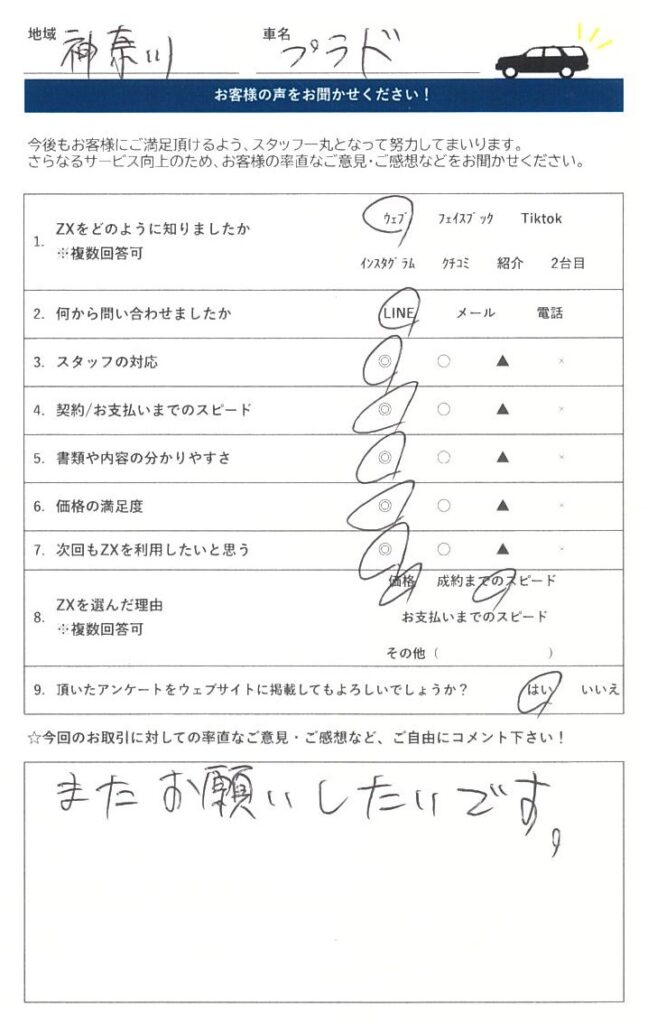 地域 神奈川 車名 プラド
お客様の声をお聞かせください！
今後もお客様にご満足頂けるよう、スタッフ一丸となって努力してまいります。
さらなるサービス向上のため、お客様の率直なご意見・ご感想などをお聞かせください。
1. ZXをどのように知りましたか
※複数回答可
ウェブ フェイスブック Tiktok
インスタグラム クチコミ 紹介 2台目
2. 何から問い合わせましたか LINE メール 電話
3. スタッフの対応 ◎ ○ ▲ ×
4. 契約/お支払いまでのスピード ◎ ○ ▲ ×
5. 書類や内容の分かりやすさ ◎ ○ ▲ ×
6. 価格の満足度 ◎ ○ ▲ ×
7. 次回もZXを利用したいと思う ◎ ○ ▲ ×
8. ZXを選んだ理由
※複数回答可
価格 成約までのスピード
お支払いまでのスピード
その他（ ）
9. 頂いたアンケートをウェブサイトに掲載してもよろしいでしょうか？ はい いいえ
☆今回のお取引に対しての率直なご意見・ご感想など、ご自由にコメント下さい！
またお願いしたいです。